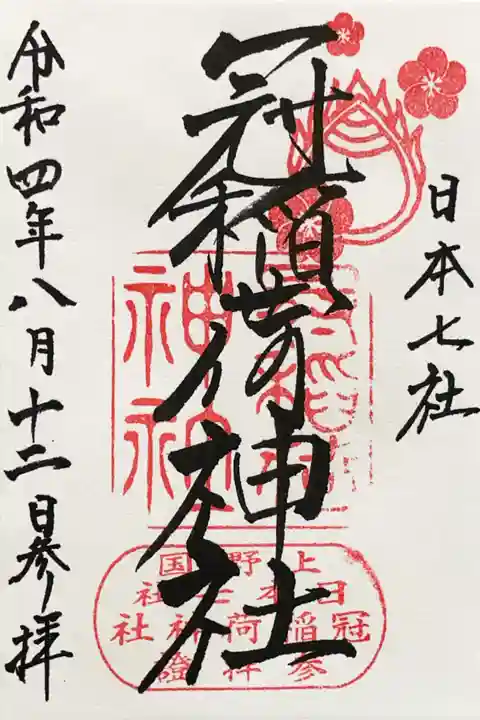 日本七社
冠稲荷神社
令和四年八月十二日参り拝
冠稲荷神社
上野国
日本七社
冠稲荷神社
参拝證